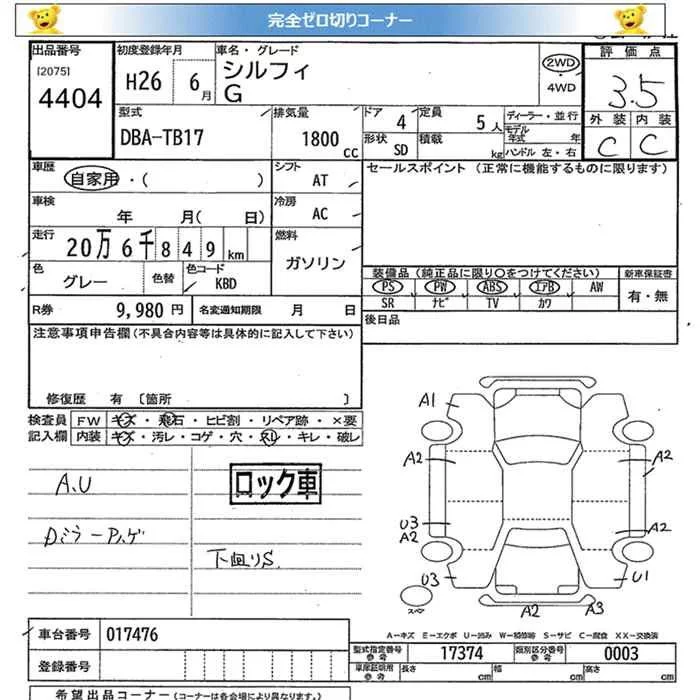 完全ゼロ切りコーナー
出品番号 初度登録年月 車名・グレード 評価点
[2075] 4404 H26 6月 シルフィ 2WD・4WD 3.5
G
外装 内装
型式 排気量 ドア 4 定員 5人 ディーラー・並行
DBA-TB17 1800cc 形状 SD 積載 kg モデル年式 年 C C
ハンドル 左・右
車歴 自家用・( ) シフト AT セールスポイント (正常に機能するものに限ります)
車検 年 月( 日) 冷房 AC
走行 20万6千849km 燃料 ガソリン
色 グレー 色替 色コード KBD 装備品 (純正品に限り○をつけてください) 新車保証書
PS PW ABS エアB AW 有・無
SR ナビ TV カワ
R券 9,980円 名変通知期限 月 日 後日品
注意事項申告欄 (不具合内容等は具体的に記入して下さい)
修復歴 有 〔箇所 〕
検査員 FW キズ・飛石・ヒビ割・リペア跡・×要
記入欄 内装 キズ・汚レ・コゲ・穴・スレ・キレ・破レ
A1
A2 A2
A.U ロック車
U3 A2 A2
Dミラーアハゲ
下回りS.
U3 U1
スペア
A2 A3
A-キズ E-エクボ U-凹み W-補修跡 S-サビ C-腐食 XX-交換済
車台番号 017476
型式指定番号 参考 17374 類別区分番号 参考 0003
登録番号
車庫証明用 参考 長さ cm 幅 cm 高さ cm
希望出品コーナー (コーナーは各会場により異なります。)